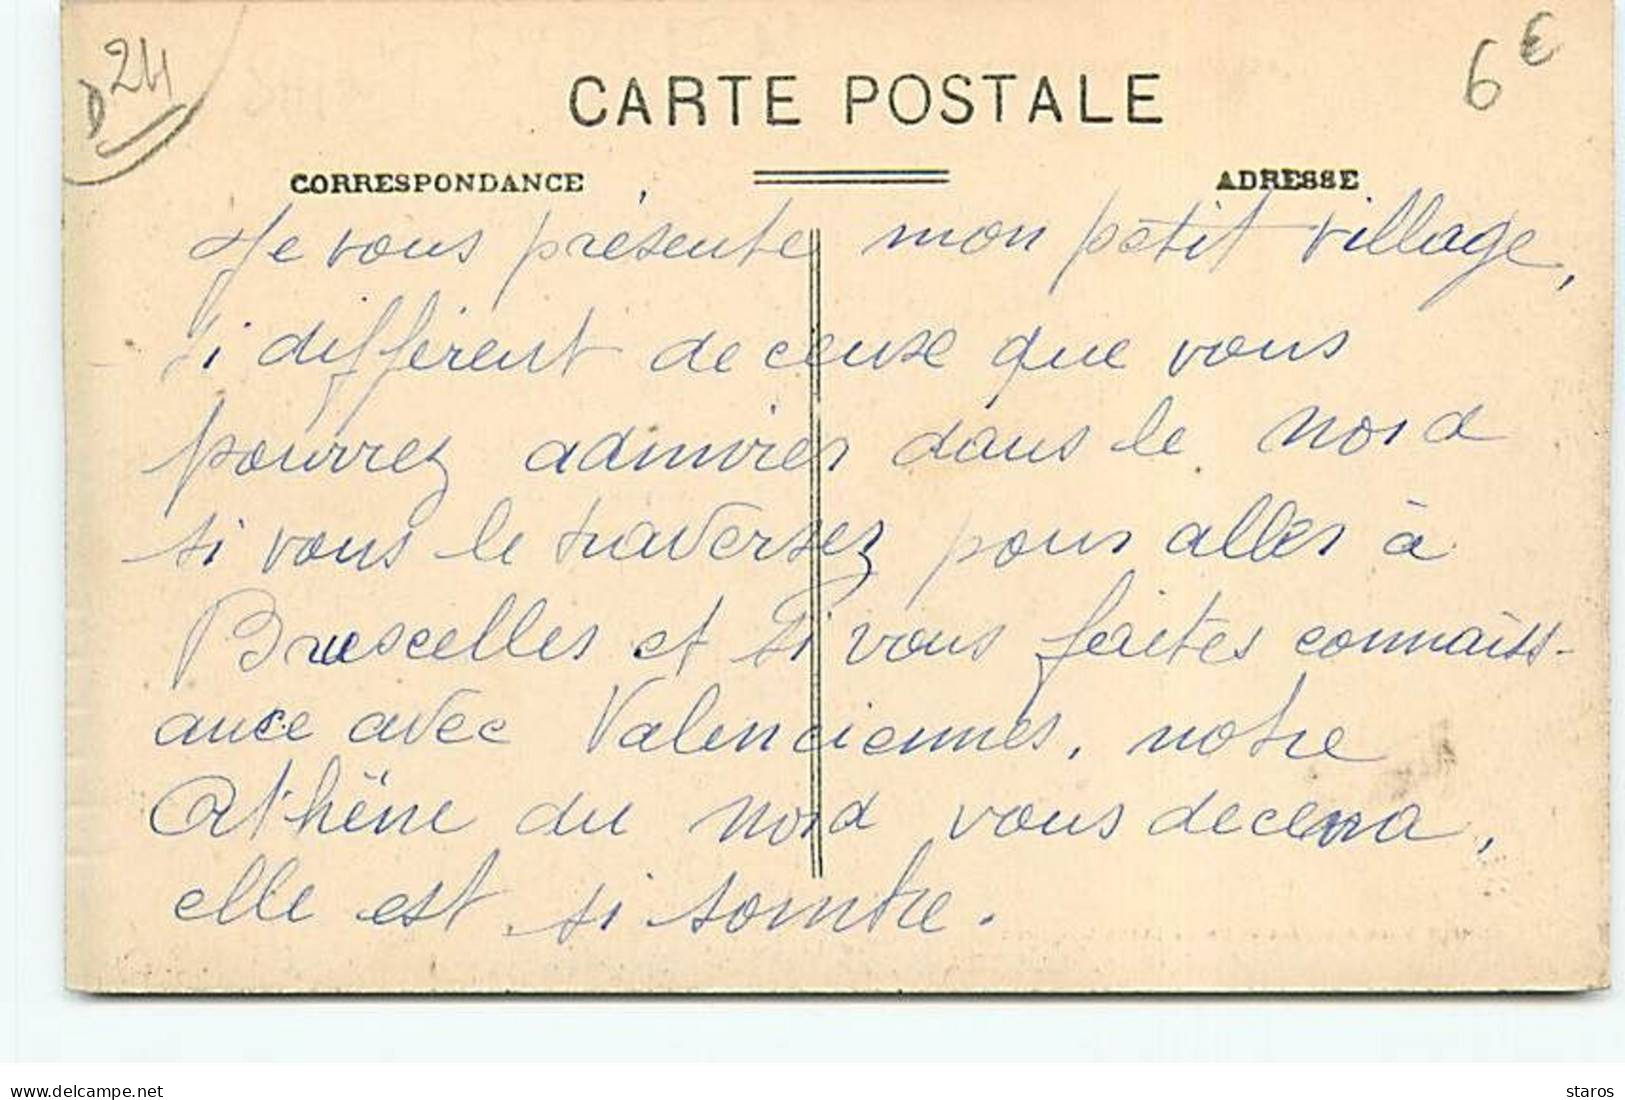 D24
6€
CARTE POSTALE
CORRESPONDANCE ADRESSE
Je vous présente mon petit village,
si différent de ceux que vous
pourrez admirer dans le Nord
si vous le traversez pour aller à
Bruxelles et si vous faites connaiss-
ance avec Valenciennes, notre
Athène du Nord vous decevra,
elle est si sombre.
delcampe.net
staros